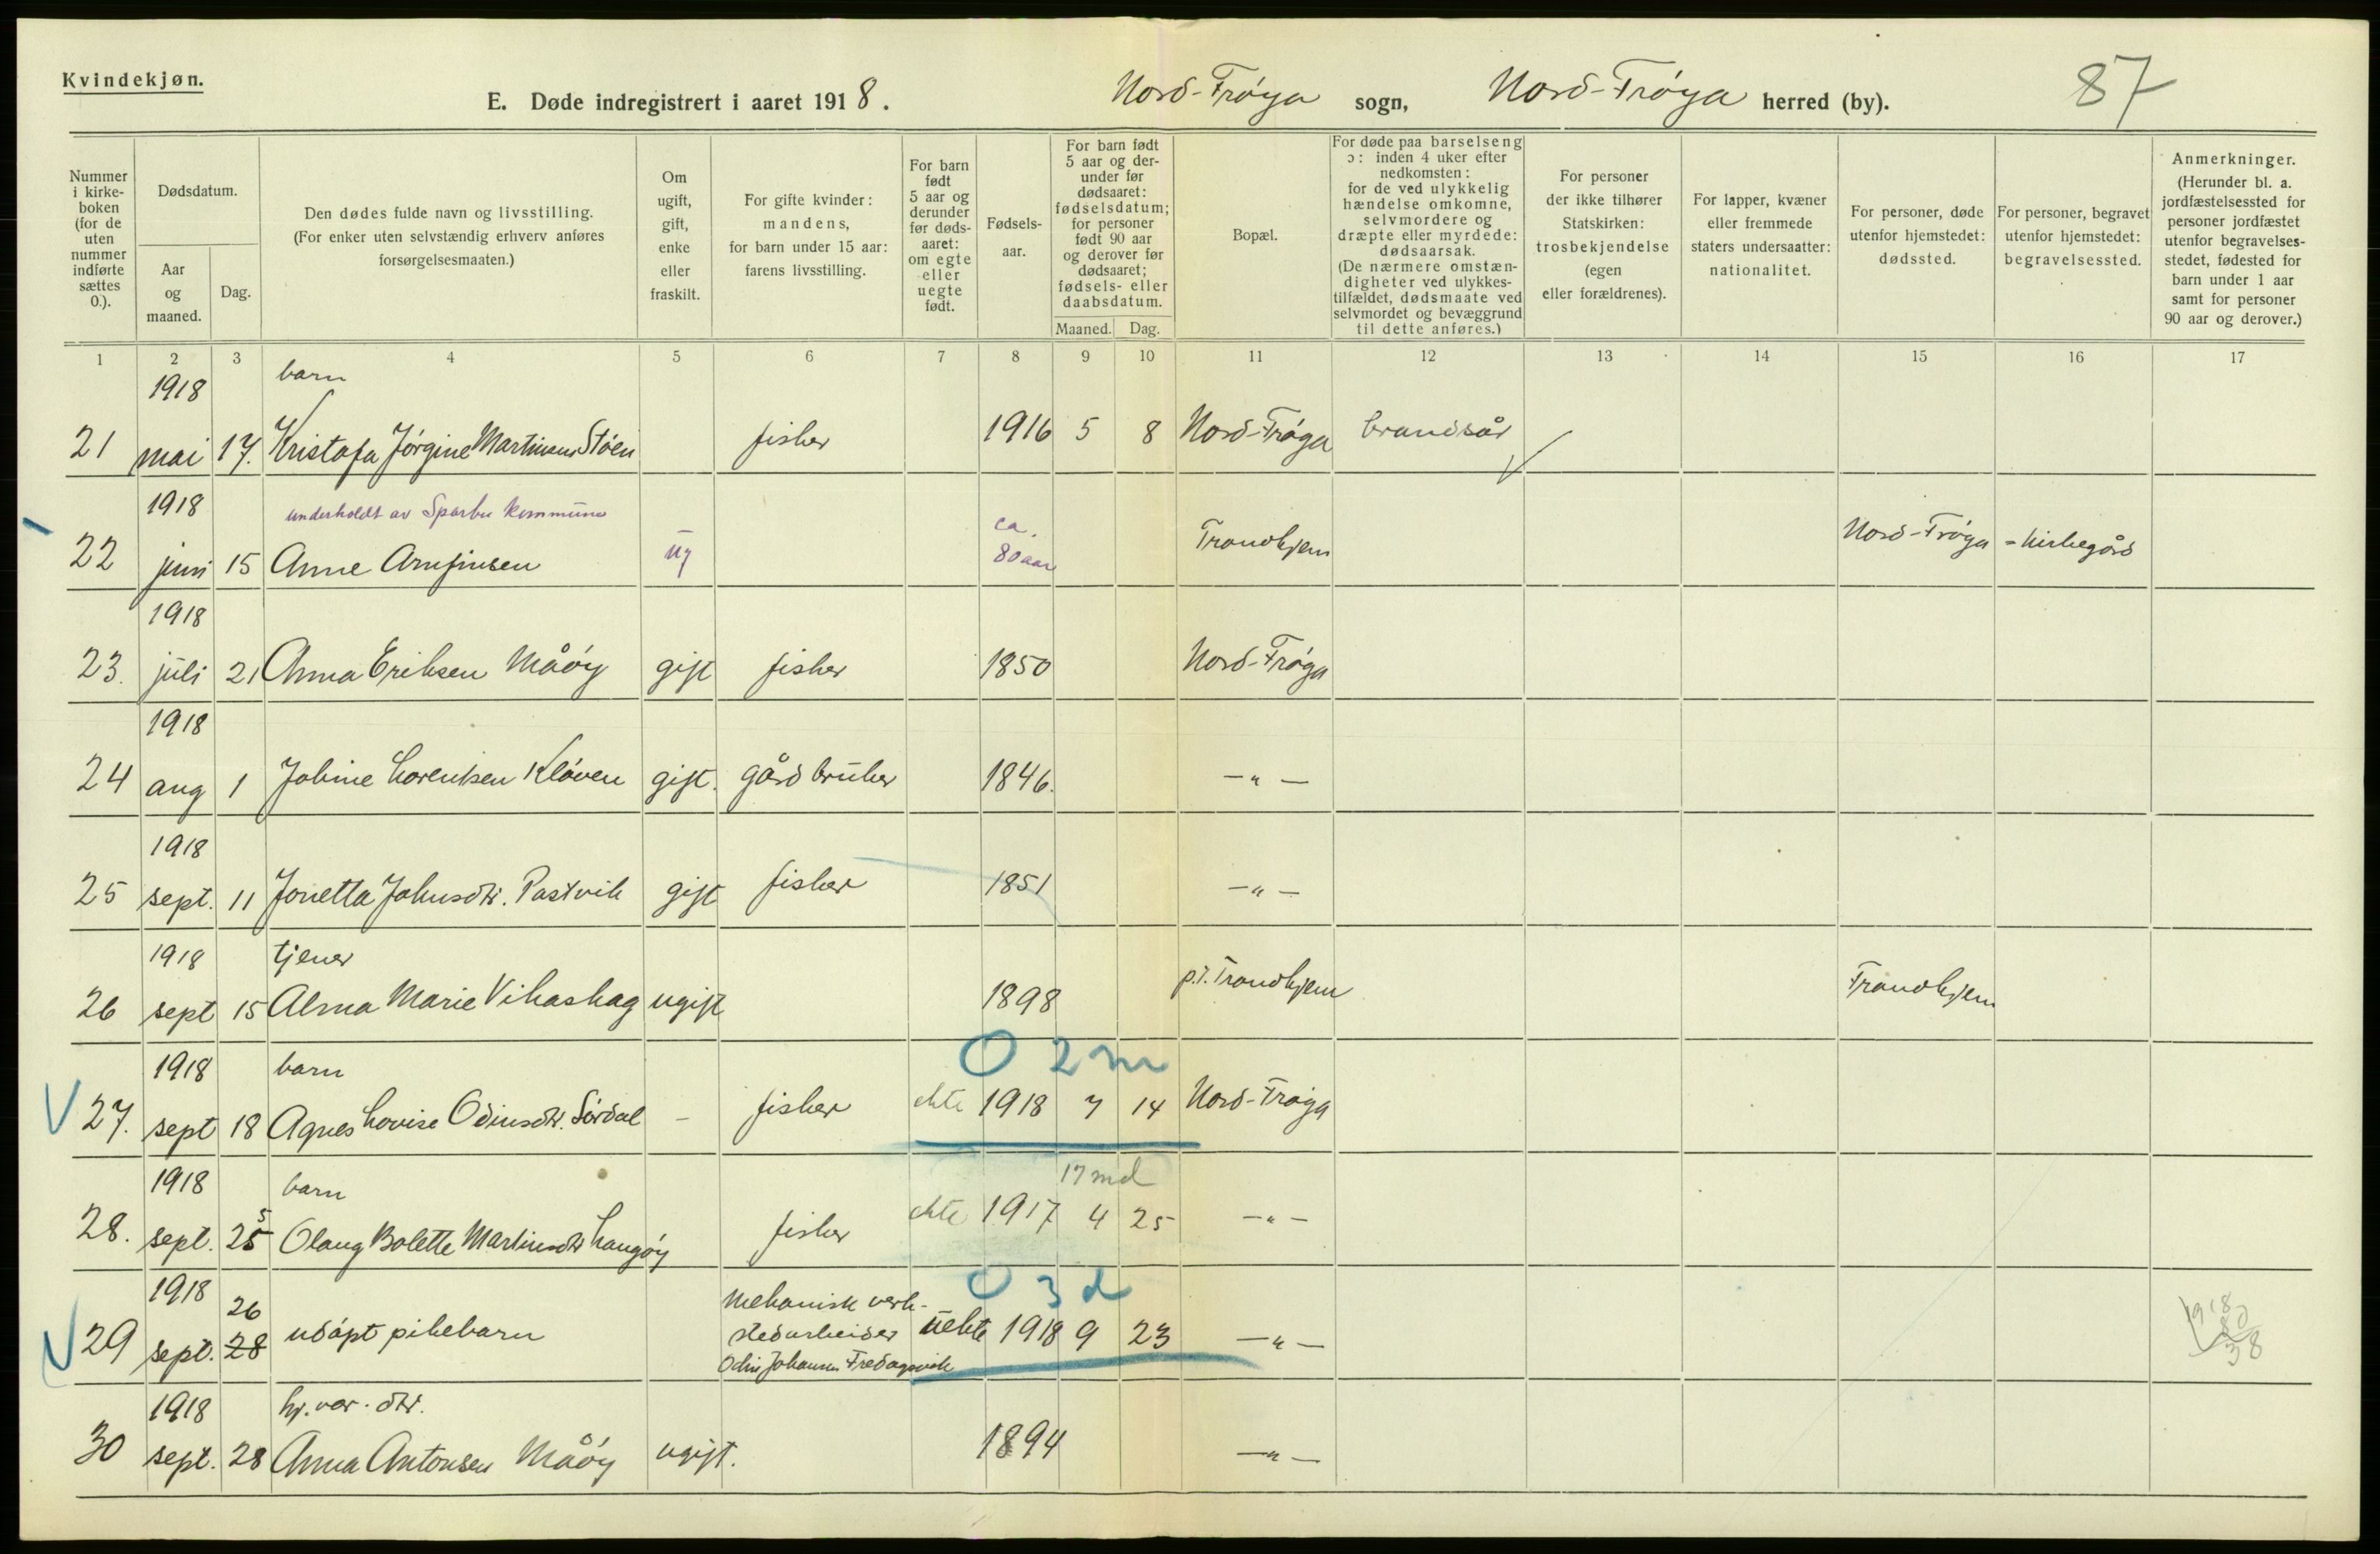 Kvindekjøn.
E. Døde indregistrert i aaret 1918. Nord-Frøya sogn, Nord-Frøya herred (by). 87
Nummer i kirke- boken (for de uten nummer indførte sættes 0.).
Dødsdatum.
Aar og maaned.
Dag.
Den dødes fulde navn og livsstilling.
(For enker uten selvstændig erhverv anføres
forsørgelsesmaaten.)
Om ugift, gift, enke eller fraskilt.
For gifte kvinder:
mandens,
for barn under 15 aar:
farens livsstilling.
For barn født 5 aar og derunder før døds- aaret: om egte eller uegte født.
Fødsels- aar.
For barn født
5 aar og der-
under før
dødsaaret:
fødselsdatum;
for personer
født 90 aar
og derover før
dødsaaret;
fødsels- eller
daabsdatum.
Maaned. Dag.
Bopæl.
For døde paa barselseng
ɔ: inden 4 uker efter
nedkomsten:
for de ved ulykkelig
hændelse omkomne,
selvmordere og
dræpte eller myrdede:
dødsaarsak.
(De nærmere omstæn-
digheter ved ulykkes-
tilfældet, dødsmaate ved
selvmordet og bevæggrund
til dette anføres.)
For personer
der ikke tilhører
Statskirken:
trosbekjendelse
(egen
eller forældrenes).
For lapper, kvæner
eller fremmede
staters undersaatter:
nationalitet.
For personer, døde
utenfor hjemstedet:
dødssted.
For personer, begravet
utenfor hjemstedet:
begravelsessted.
Anmerkninger.
(Herunder bl. a.
jordfæstelsessted for
personer jordfæstet
utenfor begravelses-
stedet, fødested for
barn under 1 aar
samt for personer
90 aar og derover.)
1 2 3 4 5 6 7 8 9 10 11 12 13 14 15 16 17
1918 barn
21 mai 17. Kristafa Jørgine Martinsen Støen fisker 1916 5 8 Nord-Frøya brandsår
1918 underholdt av Sparbu kommune
22 juni 15 Anne Arnfinsen ug ca. 80 aar Trondhjem Nord-Frøya = kirkegård
1918
23. juli 21 Anna Eriksen Måöy gift fisker 1850 Nord-Frøya
1918
24 aug 1 Johine Lorentsen Kløven gift. gårdbruker 1846. -"-
1918
25 sept. 11 Jonetta Johnsdtr. Pastvik gift fisker 1851 -"-
1918 tjener
26 sept 15 Alma Marie Vikaskag ugift 1898 p.t. Trondhjem Trondhjem
O 2 m
1918 barn
27. sept 18 Agnes Lovise Odinsdtr. Sördal - fisker ekte 1918 7 14 Nord-Frøya
17 md
1918 barn
28. sept. 25 5 Olaug Bolette Martinsdtr Langöy fisker ekte 1917 4 25 -"-
O 3 d
1918 26
29 sept. 28 udöpt pikebarn Mekanisk verk-
stedarbeider uekte 1918 9 23 -"-
Odin Johansen Fredagsvik
1918 hr. var. dtr.
30 sept. 28 Anna Antonsen Måöy ugift. 1894 -"-